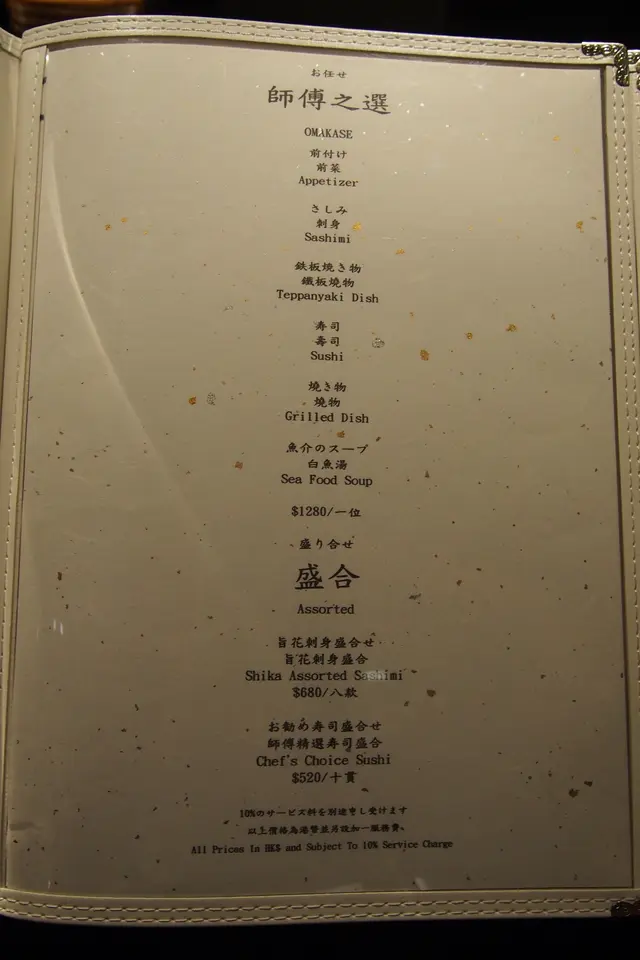 お任せ
師傅之選
OMAKASE
前付け
前菜
Appetizer
さしみ
刺身
Sashimi
鉄板焼き物
鐵板燒物
Teppanyaki Dish
寿司
壽司
Sushi
焼き物
燒物
Grilled Dish
魚介のスープ
白魚湯
Sea Food Soup
$1280/一位
盛り合せ
盛合
Assorted
旨花刺身盛合せ
旨花刺身盛合
Shika Assorted Sashimi
$680/八款
お勧め寿司盛合せ
師傅精選寿司盛合
Chef's Choice Sushi
$520/十貫
10%のサービス料を別途申し受けます
以上價格為港幣並另設加一服務費。
All Prices In HK$ and Subject To 10% Service Charge